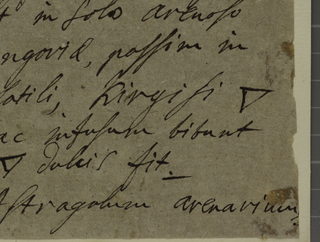 in solo arenoso
ngoviæ, passim in
Kirgisi ▽
ac infusum bibunt
▽ dulcis fit.
Astragalum arenarium